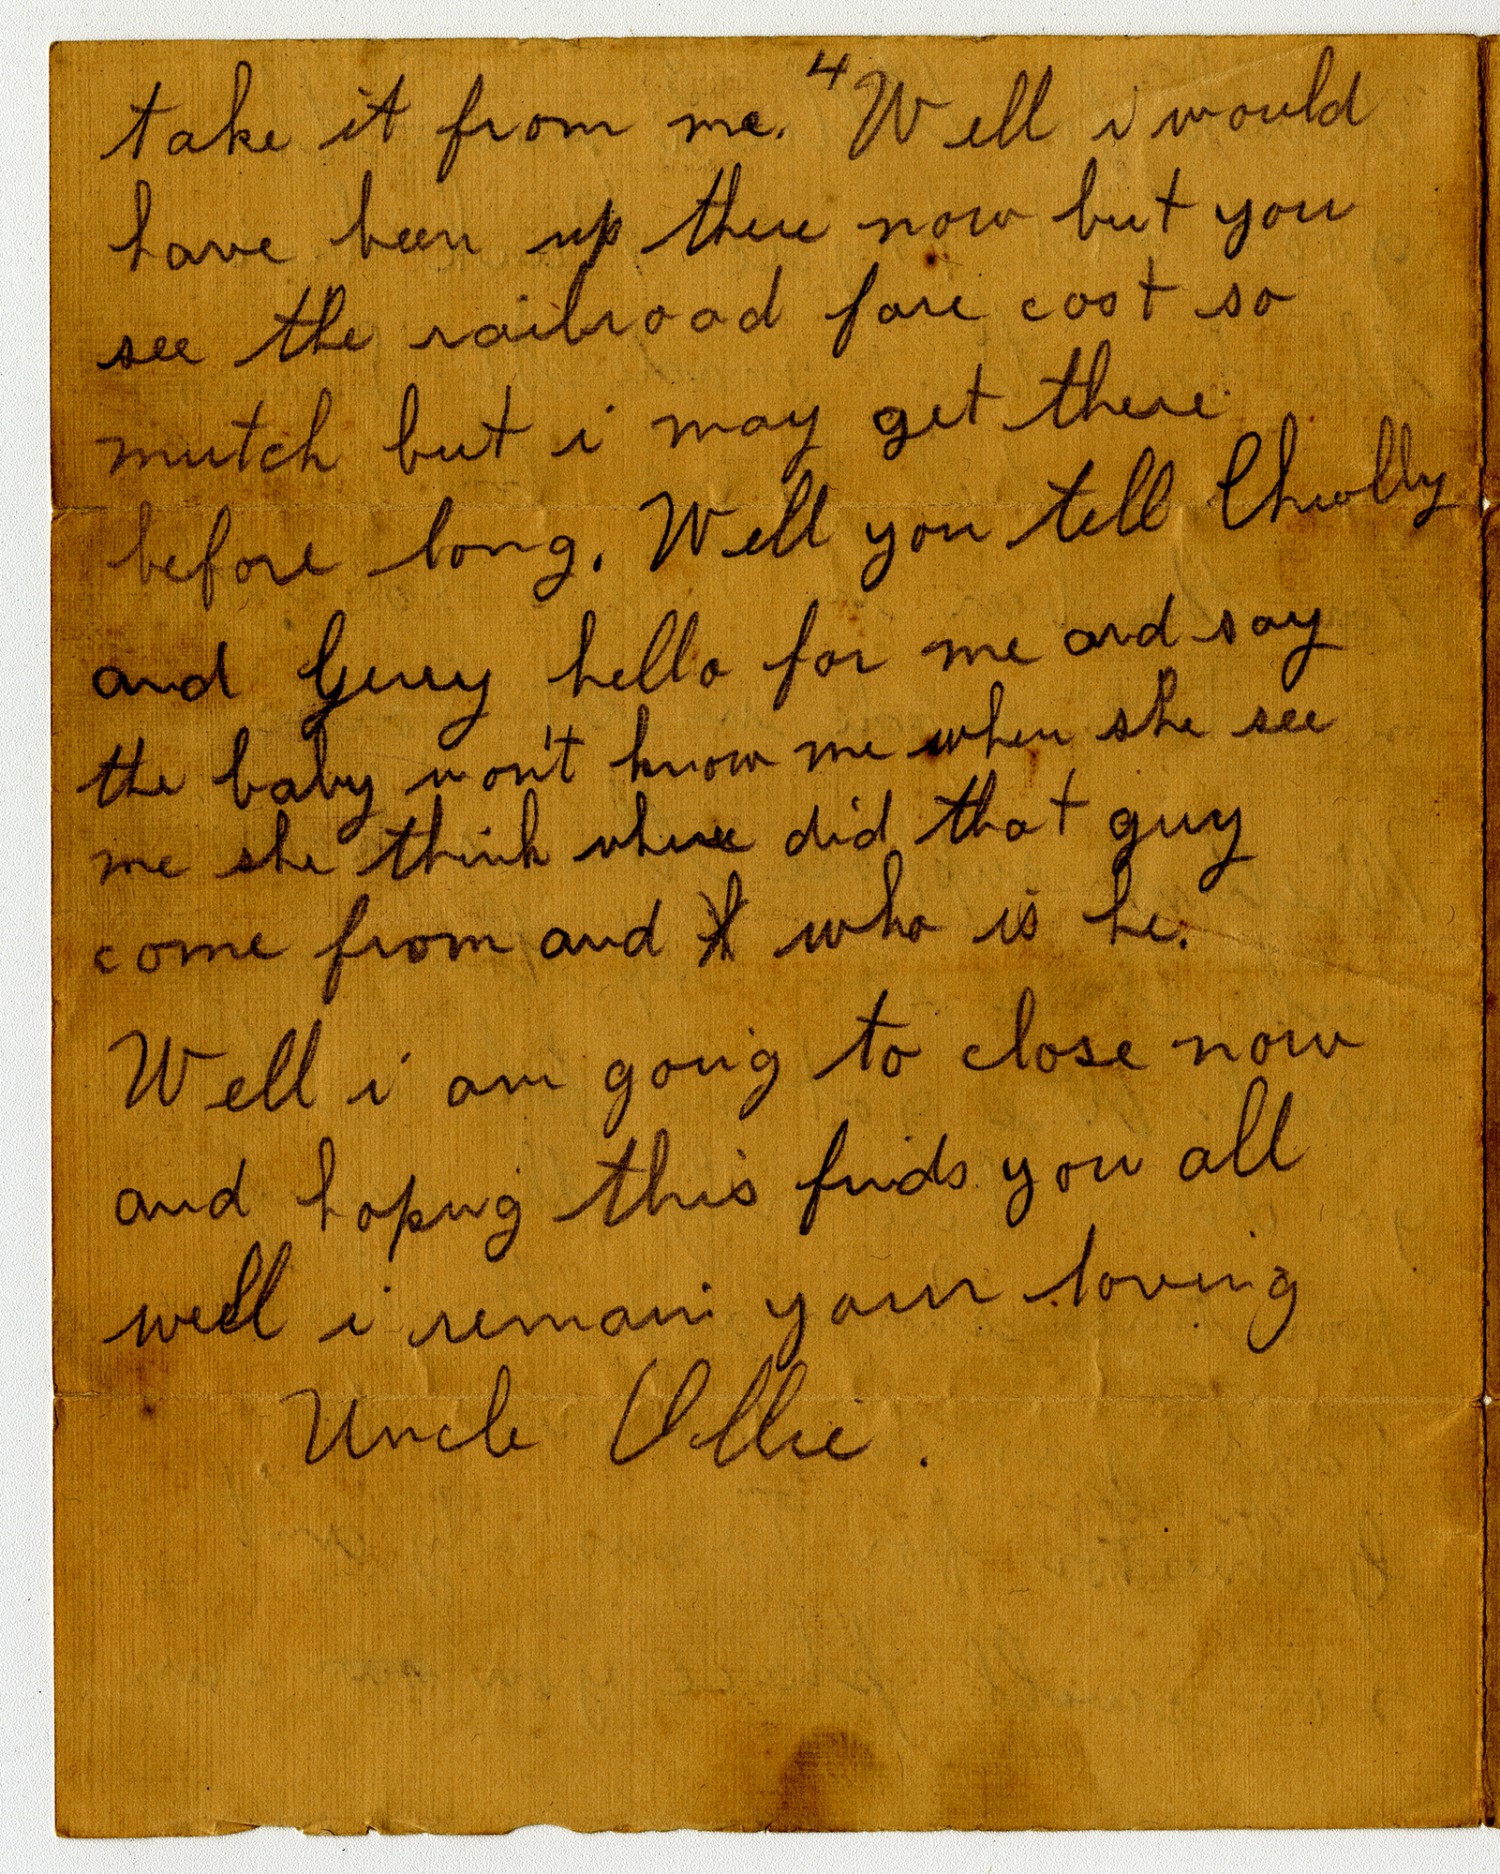 4
take it from me. Well i would
have been up there now but you
see the railroad fare cost so
mutch but i may get there
before long. Well you tell
and Gerry hello for me and say
the baby won't know me when she see
me she think where did that guy
come from and who is he.
Well i am going to close now
and hoping this finds you all
well i remain your loving
Uncle Ollie.